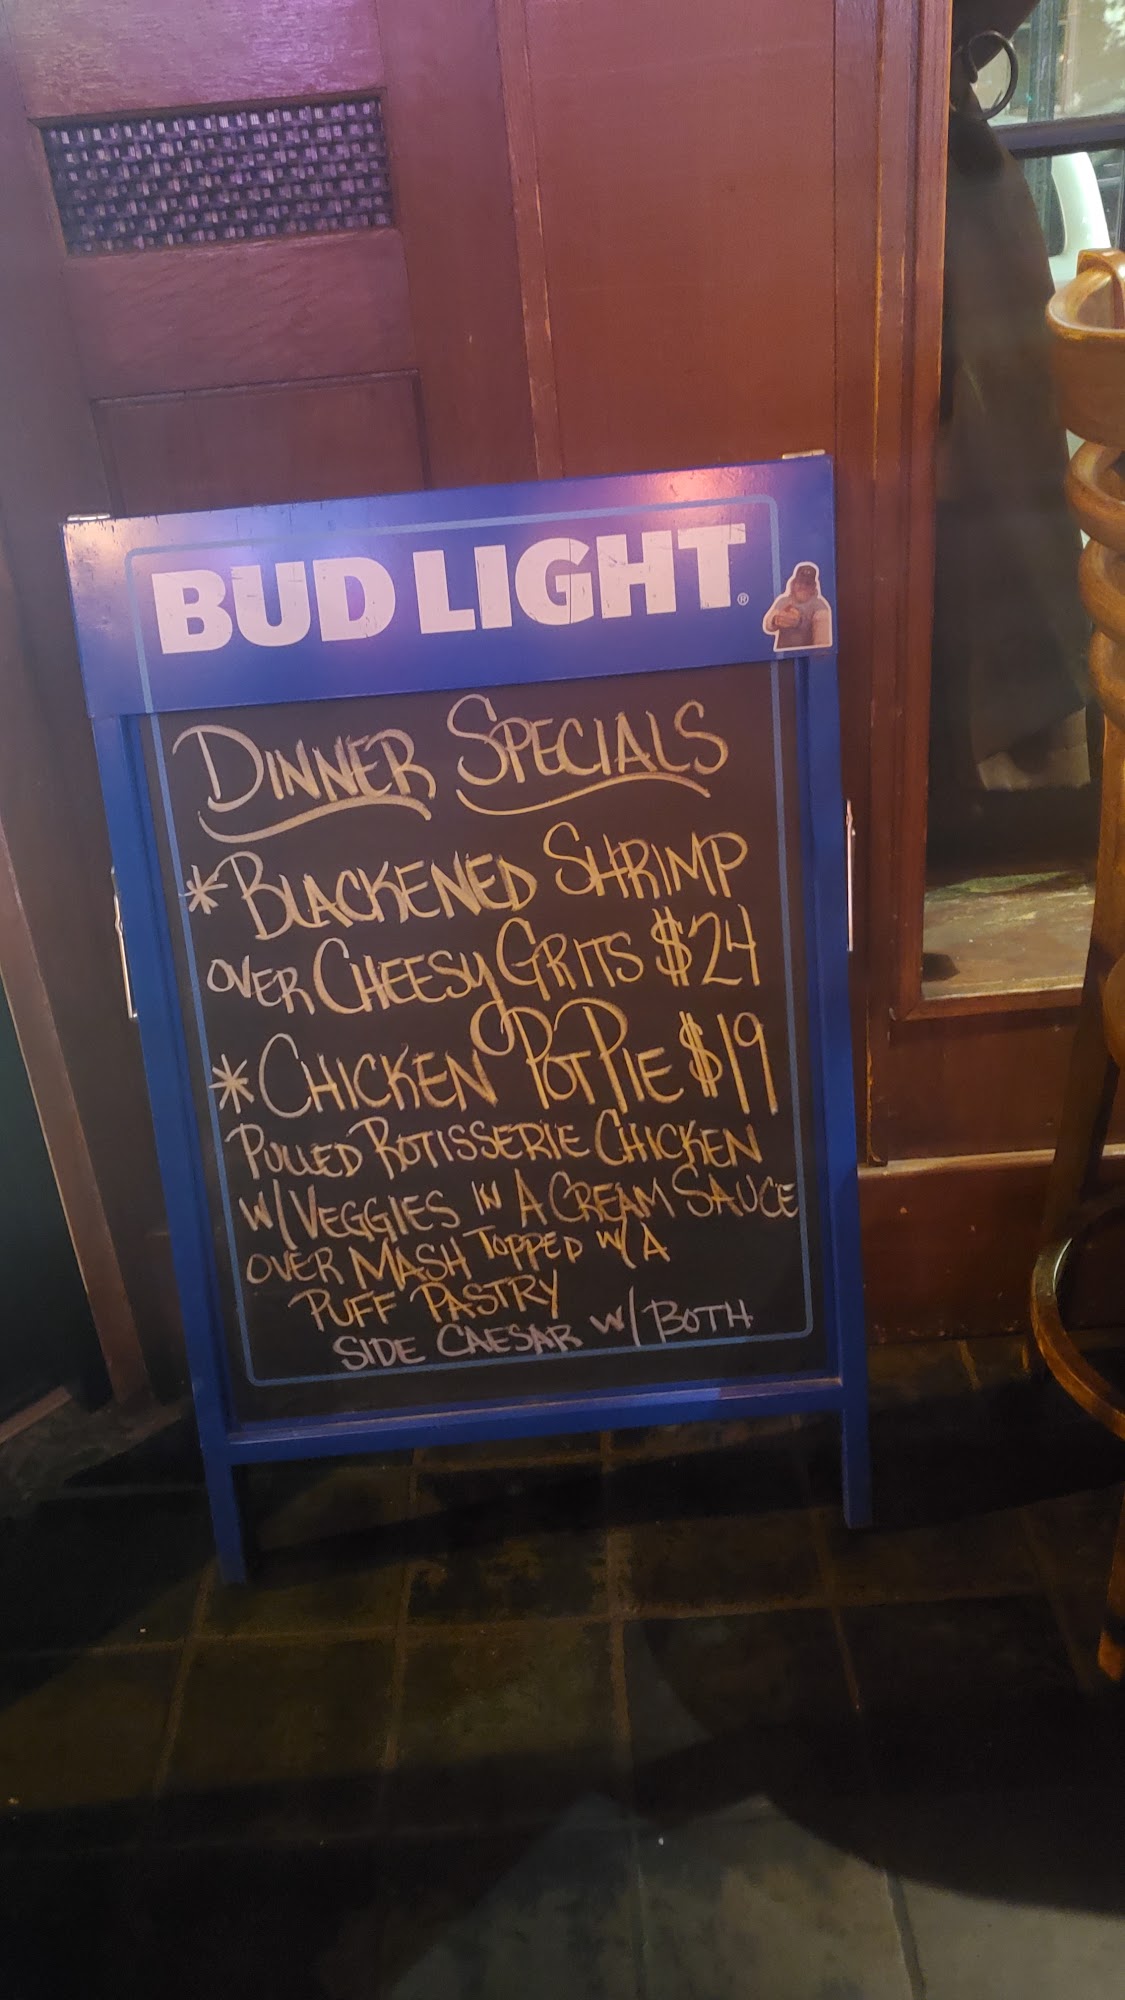 BUD LIGHT®
DINNER SPECIALS
* BLACKENED SHRIMP
OVER CHEESY GRITS $24
* CHICKEN POT PIE $19
PULLED ROTISSERIE CHICKEN
W/ VEGGIES IN A CREAM SAUCE
OVER MASH TOPPED W/ A
PUFF PASTRY
SIDE CAESAR W/ BOTH